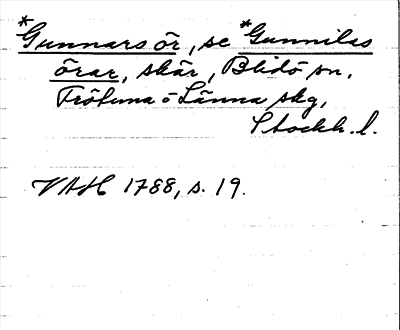 *Gunnars ör, se *Gunnilas
örar, skär, Blidö sn,
Frötuna o Länna skg,
Stockh. l.
VAH 1788, s. 19.